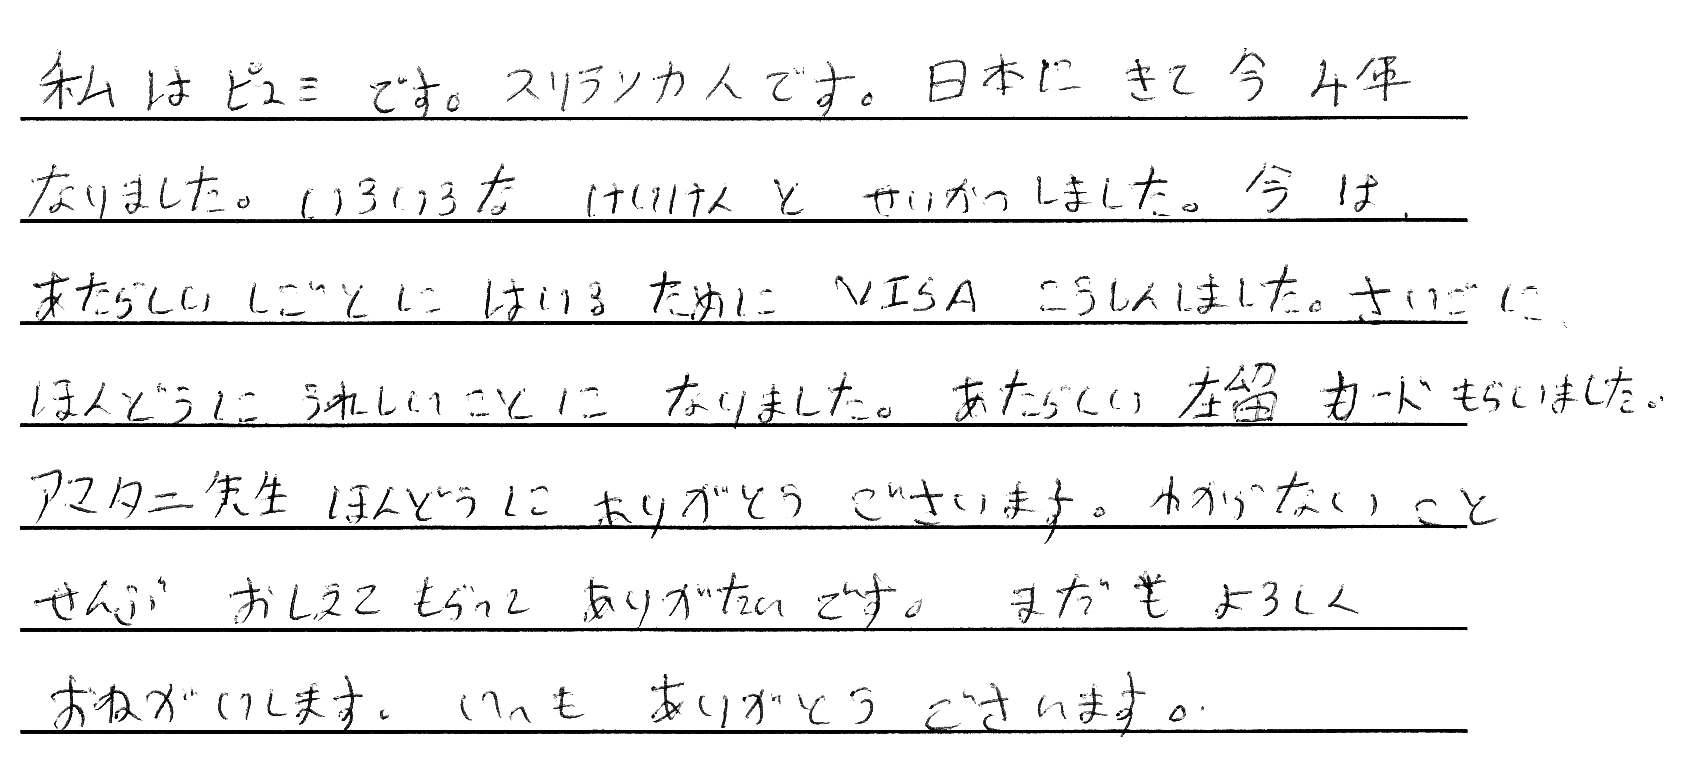 私は ピユミ です。スリランカ人です。日本に きて 今 4年
なりました。いろいろな けいけん と せいかつしました。今 は、
あたらしい しごとに はいる ために VISA こうしんしました。さいごに、
ほんどうに うれしいことに なりました。あたらしい 在留 カード もらいました。
アマタニ先生 ほんどうに ありがとう ございます。わからないこと
せんぶ おしえて もらって ありがたい です。 まだも よろしく
おねがいします。 いつも ありがとう ごさいます。